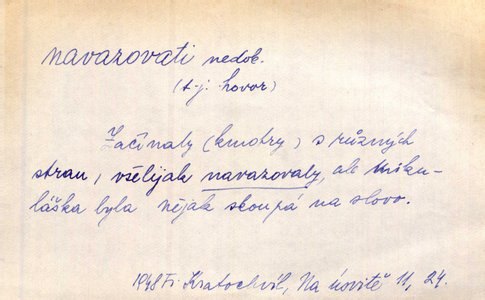 navazovati nedok.
(t-j. hovor)
Začínaly (kmotry) s různých
stran, všelijak navazovaly, ale Miku-
láška byla nějak skoupá na slovo.
1948 Fr. Kratochvíl, Na úsvitě 11, 24.